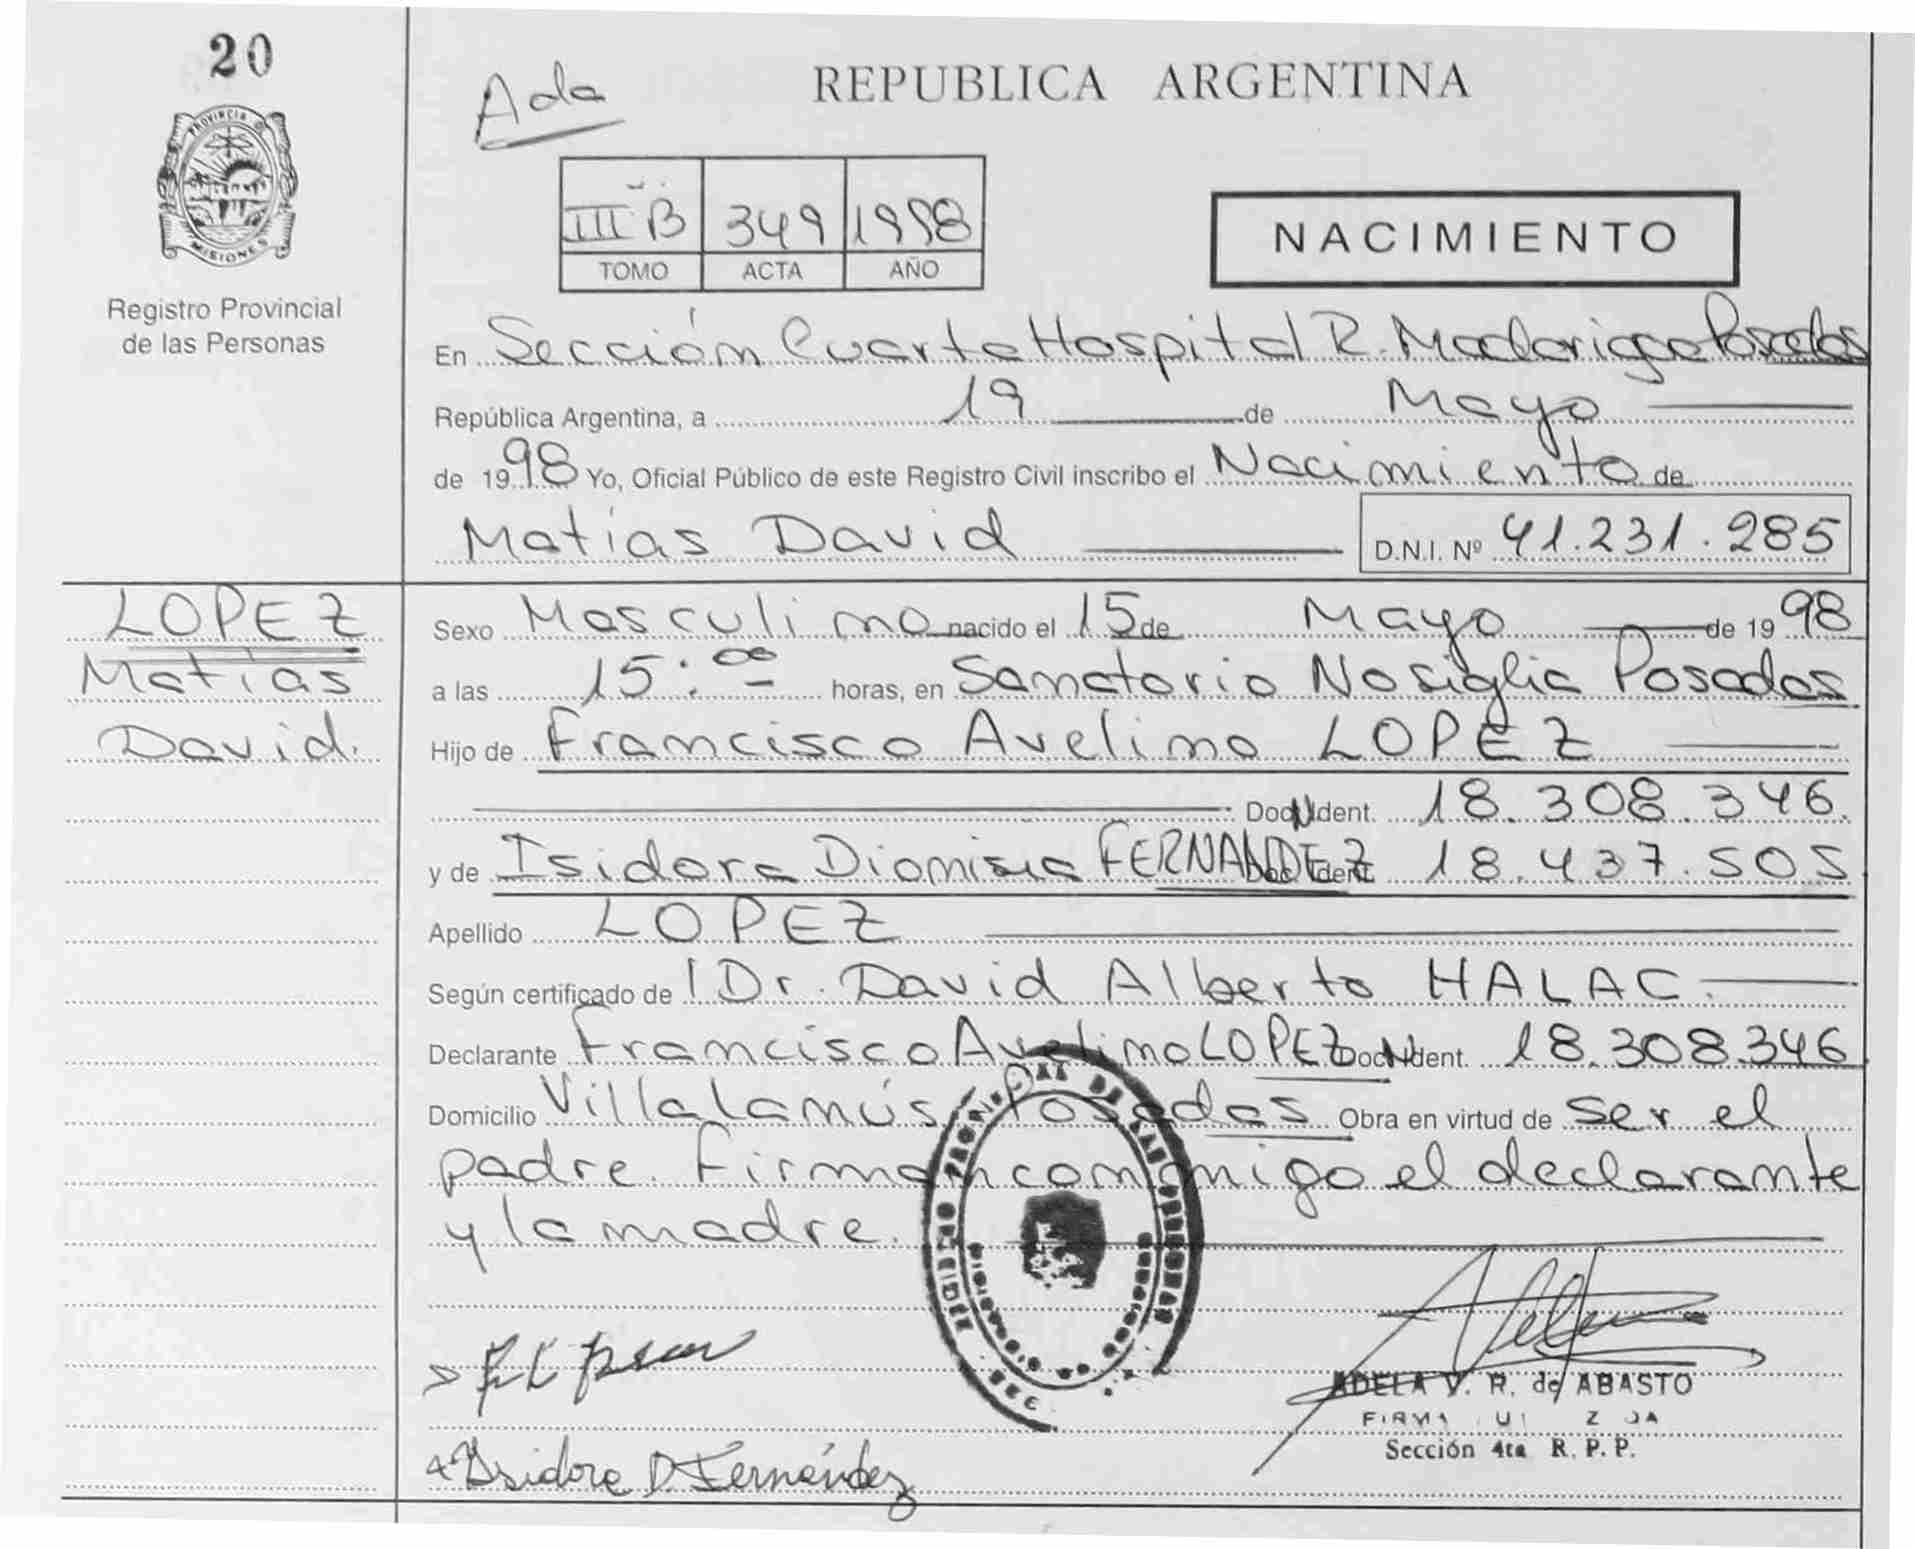 20
PROVINCIA D
MISIONES
Registro Provincial
de las Personas
Ada
REPUBLICA ARGENTINA
III B 349 1998
TOMO ACTA AÑO
NACIMIENTO
En Sección Cuarta Hospital R. Madariaga Posadas
República Argentina, a 19 de Mayo
de 1998 Yo, Oficial Público de este Registro Civil inscribo el Nacimiento de
Matías David D.N.I. Nº 41.231.285
LOPEZ
Matías
David.
Sexo Masculino nacido el 15 de Mayo de 1998
a las 15:00 horas, en Sanatorio Nosiglia Posadas
Hijo de Francisco Avelino LOPEZ
Doc. Ident. 18.308.346.
y de Isidora Dionisia FERNANDEZ Doc. Ident. 18.437.505
Apellido LOPEZ
Según certificado de l Dr. David Alberto HALAC.
Declarante Francisco Avelino LOPEZ Doc. Ident. 18.308.346
Domicilio Villa Lanús Posadas Obra en virtud de ser el
padre. Firman conmigo el declarante
y la madre.
REGISTRO PROVINCIAL DE LAS PERSONAS
ADELA V. R. de ABASTO
Sección 4ta R. P. P.
Isidora D. Fernández